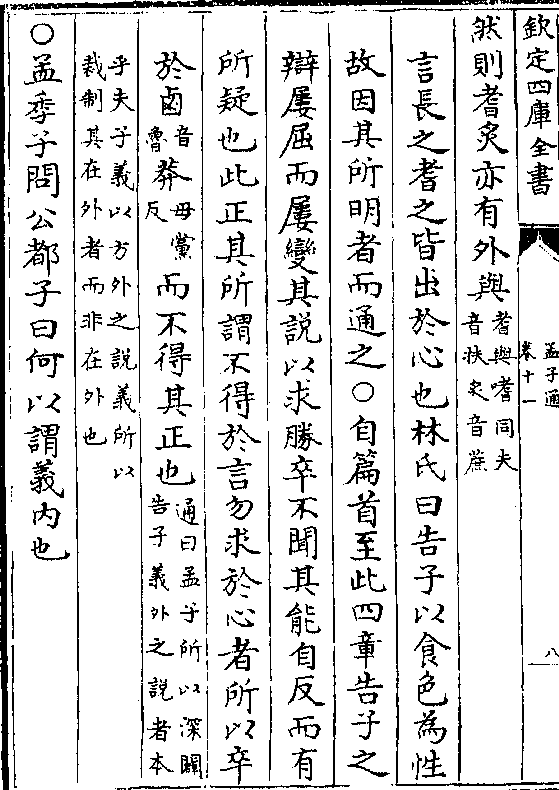 欽定四庫全書
孟子通
卷十一
八
然則耆炙亦有外與耆與嗜同夫
音扶炙音蔗
言長之耆之皆出於心也林氏曰告子以食色為性
故因其所明者而通之○自篇首至此四章告子之
辯屢屈而屢變其説以求勝卒不聞其能自反而有
所疑也此正其所謂不得於言勿求於心者所以卒
於鹵音
魯莽母黨
反而不得其正也通曰孟子所以深闢
告子義外之説者本
乎夫子義以方外之説義所以
裁制其在外者而非在外也
○孟季子問公都子曰何以謂義内也